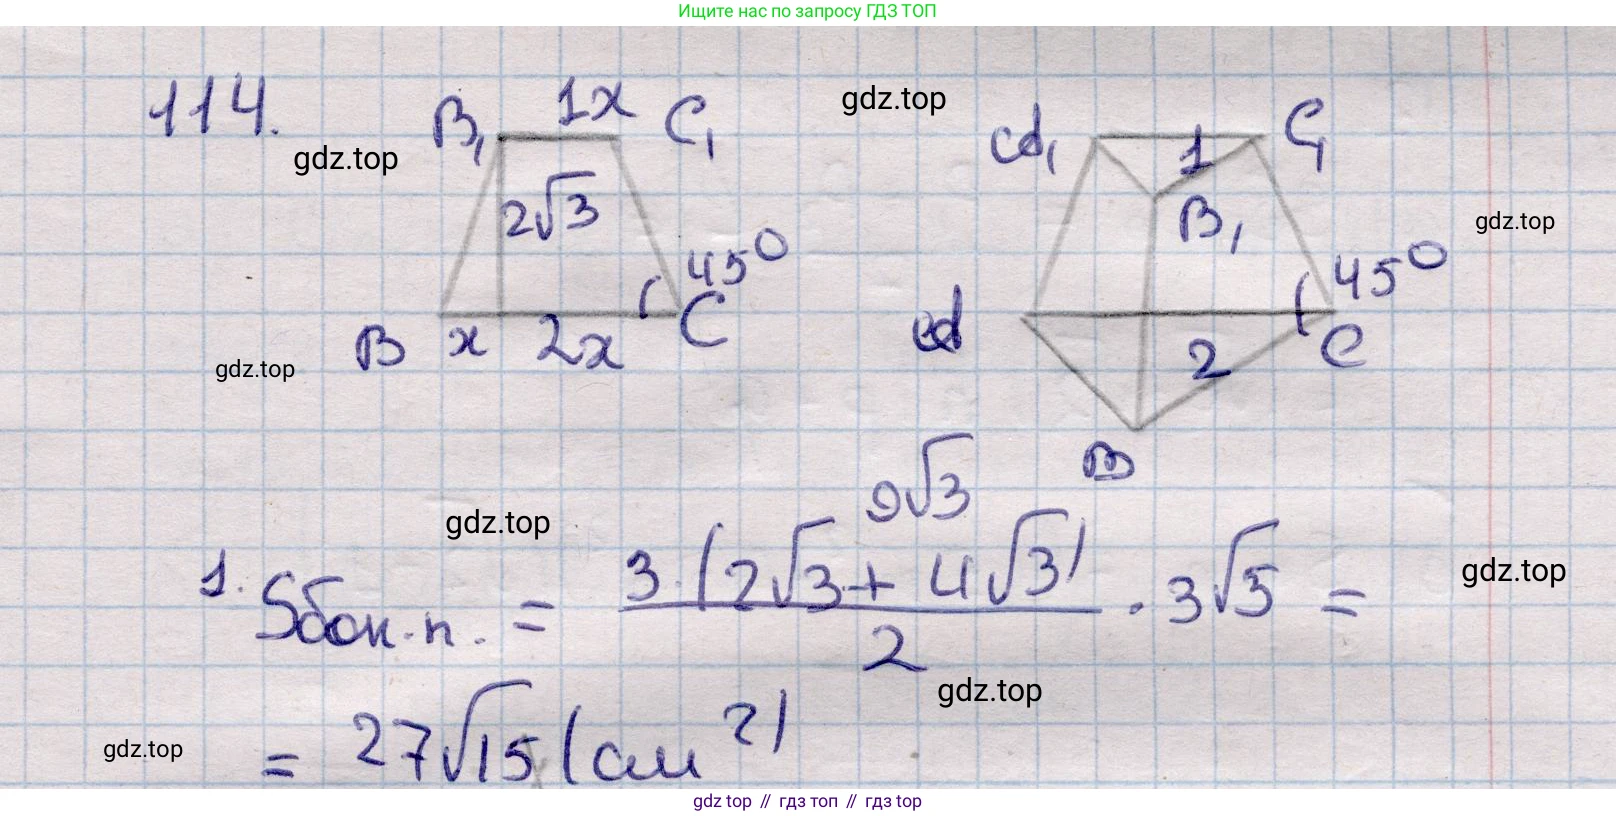 Ищите нас по запросу ГДЗ ТОП
114.
B₁ 1x C₁
2√3
45°
B x 2x C
A₁ 1 C₁
B₁
45°
A 2 C
B
gdz.top
gdz.top
gdz.top
gdz.top
9√3
1. Sбок.п. = 3·(2√3 + 4√3) / 2 · 3√5 =
gdz.top
gdz.top
gdz.top
= 27√15 (см²)
gdz.top
gdz top // гдз топ // гдз top